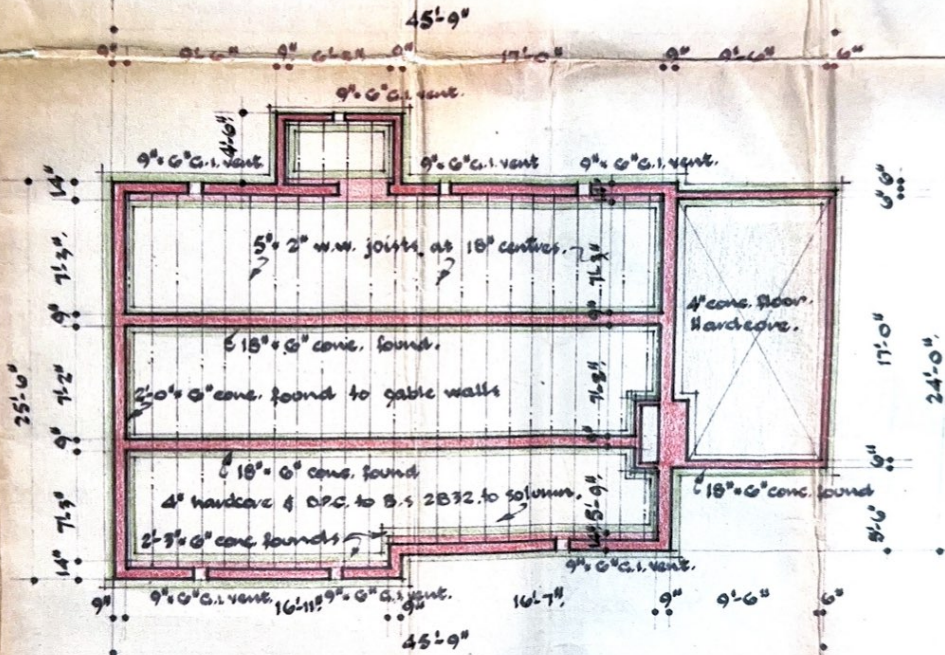 45'-9"
9" 9'-6" 9" 6'-8" 9" 17'-0" 9" 9'-6" 6"
9"× 6" C.I. vent.
4'-6"
9"× 6" C.I. vent 9"× 6" C.I. vent 9"× 6" C.I. vent.
14" 6" 6"
5"× 2" w.w. joists at 18" centres.
7'-3" 7'-3"
4" conc. floor.
Hardcore.
9" 9"
18"× 6" conc. found.
17'-0"
25'-6" 7'-2" 24'-0"
2'-0"× 6" conc. found to gable walls
9"
18"× 6" conc. found 6"
4" hardcore & D.P.C. to B.S 2832. to solumn. 18"× 6" conc. found
7'-3" 5'-9"
2'-3"× 6" conc. founds 5'-6"
14" 9"× 6" C.I. vent.
9" 9"× 6" C.I. vent. 16'-11" 9"× 6" C.I. vent. 9" 16'-7" 9" 9'-6" 6"
45'-9"